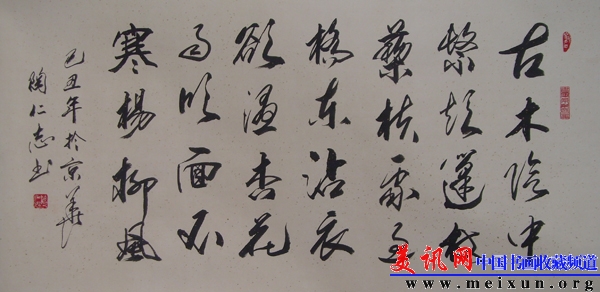 古木陰中
繫短篷杖
藜扶我過
橋東沾衣
欲濕杏花
雨吹面不
寒楊柳風
己丑年於京華
陶仁志书
美讯网 中国书画收藏频道
www.meixun.org